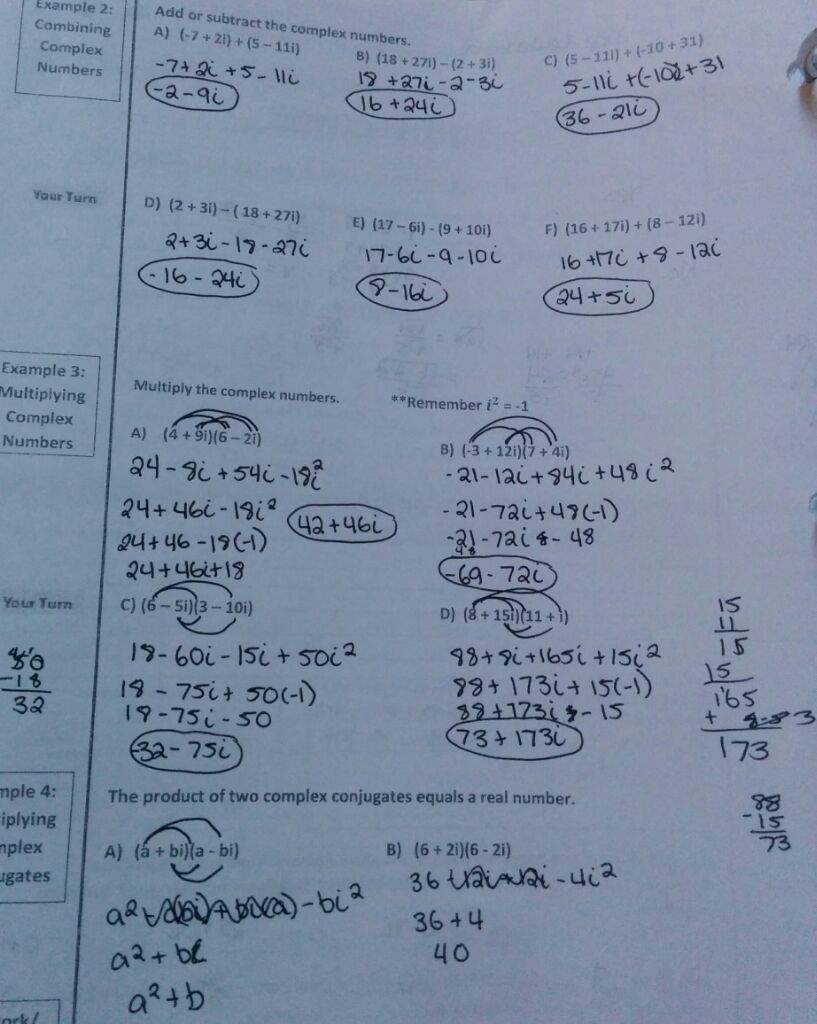 Example 2:
Combining
Complex
Numbers
Add or subtract the complex numbers.
A) (-7 + 2i) + (5 – 11i)
-7+2i +5 - 11i
-2-9i
B) (18 + 27i) – (2 + 3i)
18 +27i -2-3i
16 +24i
C) (5 – 11i) + (-10 + 31)
5-11i +(-10i+31
36 - 21i
Your Turn
D) (2 + 3i) – ( 18 + 27i)
2+3i - 18 - 27i
-16 - 24i
E) (17 – 6i) - (9 + 10i)
17-6i -9 -10i
8-16i
F) (16 + 17i) + (8 – 12i)
16 +17i +8 - 12i
24+5i
Example 3:
Multiplying
Complex
Numbers
Multiply the complex numbers.
**Remember i² = -1
A) (4 + 9i)(6 – 2i)
24 - 8i + 54i - 18i²
24+46i - 18i²
24+46 - 18(-1)
24+46i+18
42+46i
B) (-3 + 12i)(7 + 4i)
-21-12i+84i+48i²
-21-72i+48(-1)
-21-72i - 48
48
-69-72i
Your Turn
C) (6 – 5i)(3 – 10i)
18-60i-15i + 50i²
18 - 75i + 50(-1)
18-75i-50
-32-75i
50
-18
32
D) (8 + 15i)(11 + i)
88+8i+165i+15i²
88+173i+15(-1)
88+173i - 15
73+173i
15
11
15
15
165
+ 8
173
88
-15
73
mple 4:
iplying
mplex
ugates
The product of two complex conjugates equals a real number.
A) (a + bi)(a - bi)
a²-a(bi)+bi(a)-bi²
a²+b
a²+b
B) (6 + 2i)(6 - 2i)
36+12i-12i-4i²
36+4
40
ork/